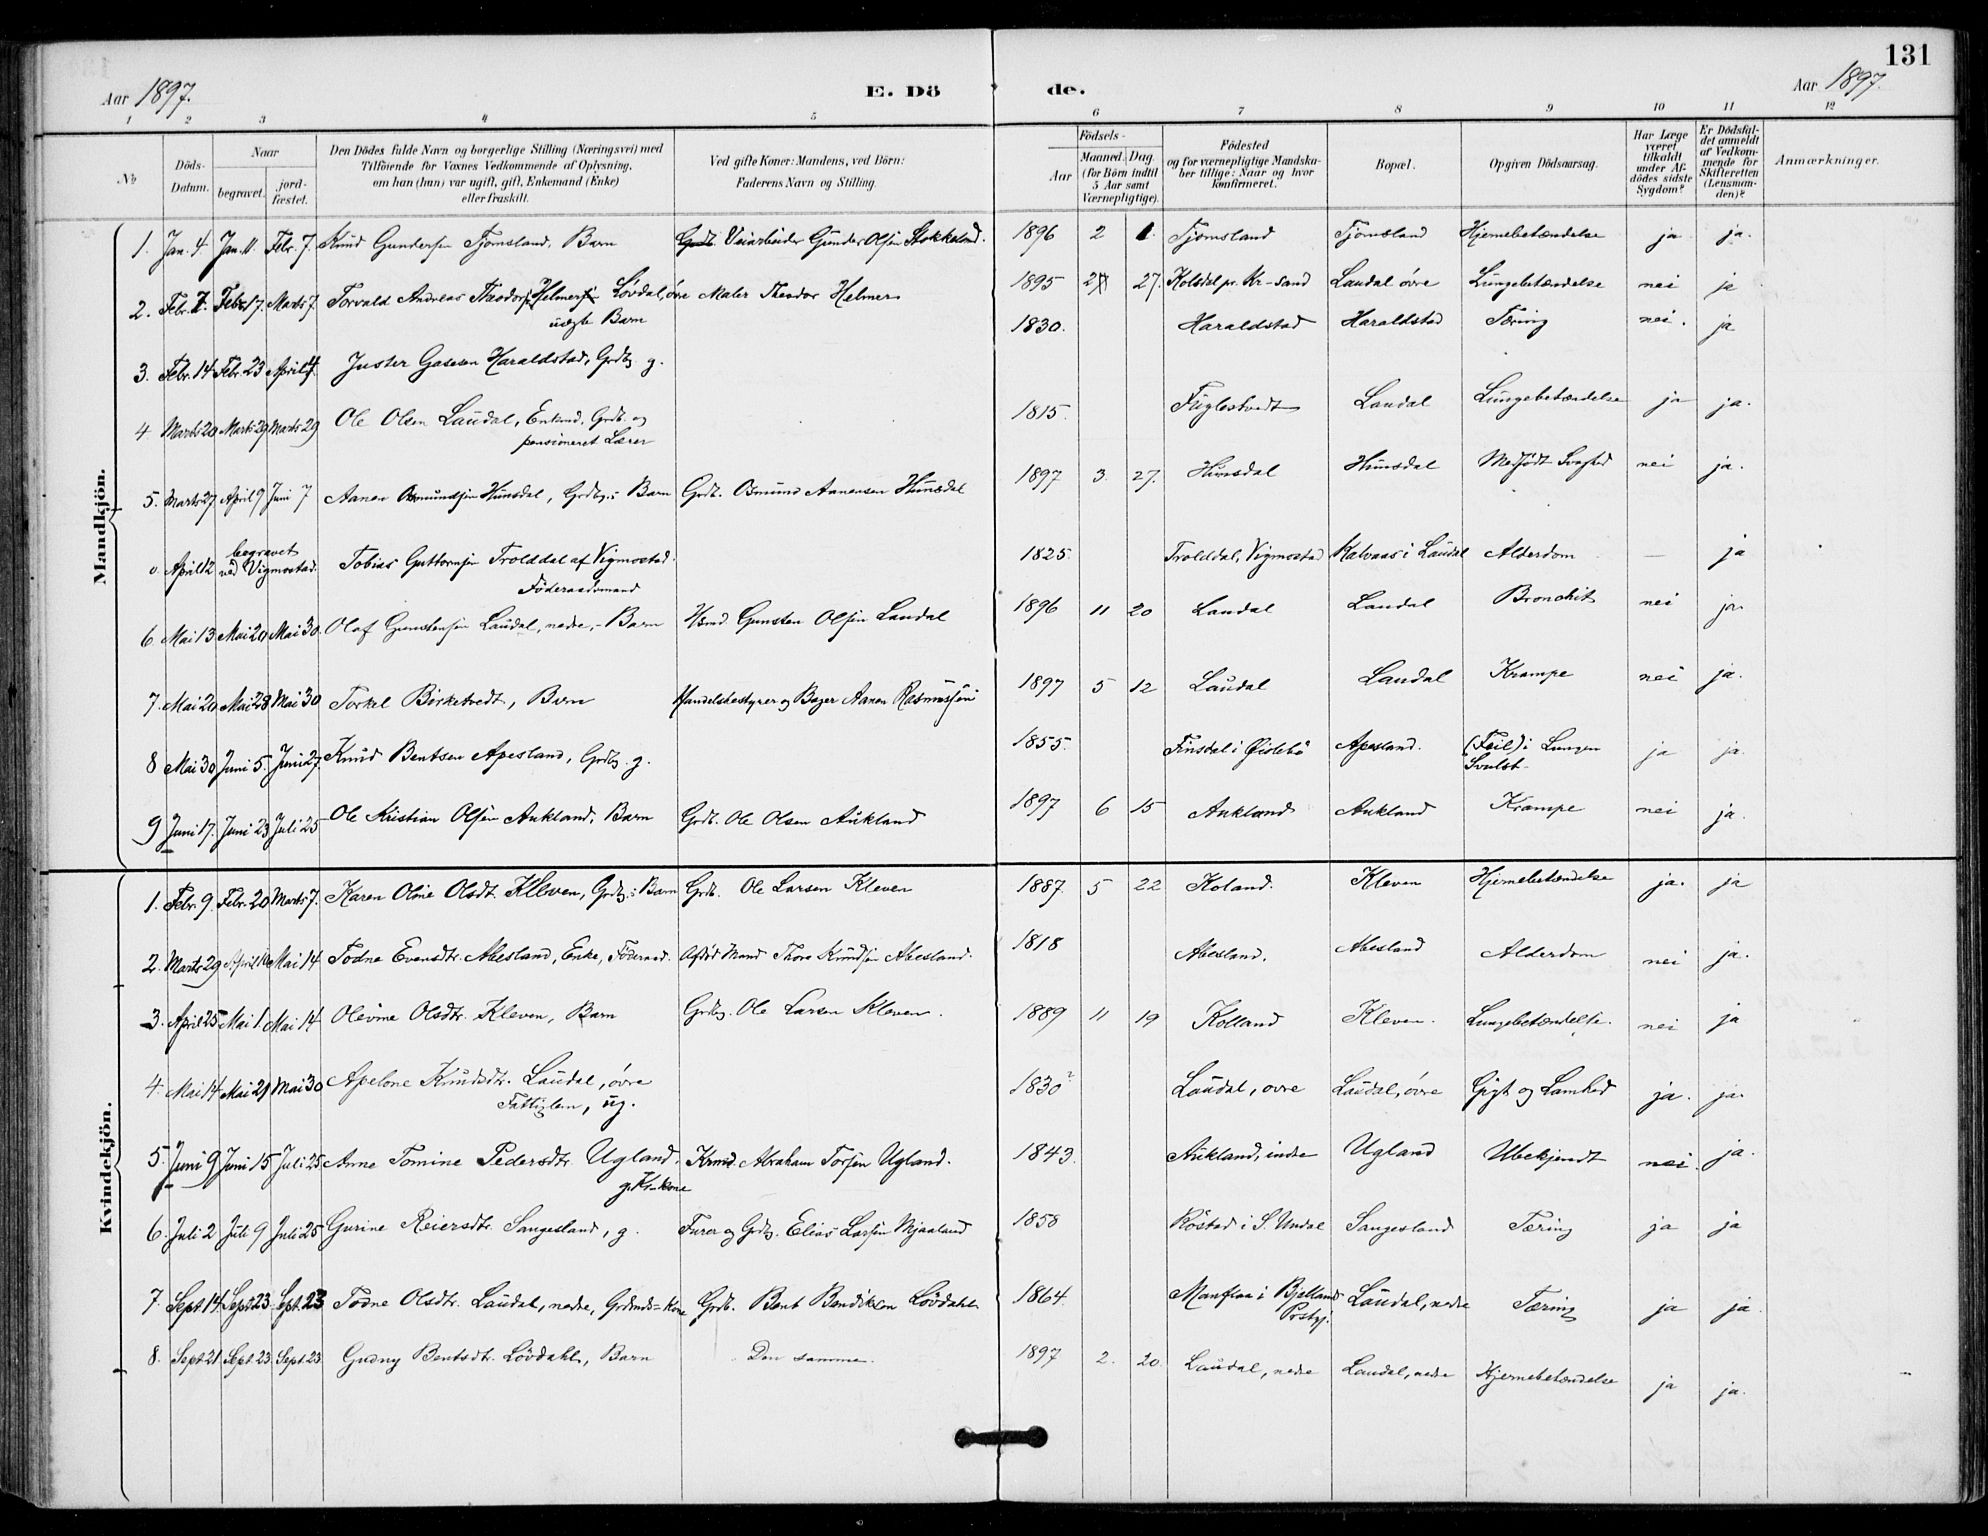 131
Aar 1897.
E. Dö
de.
Aar 1897.
1 2 3 4 5 6 7 8 9 10 11 12
No
Döds-Datum.
Naar
begravet.
jord-fæstet.
Den Dödes fulde Navn og borgerlige Stilling (Næringsvei) med
Tilföiende for Voxnes Vedkommende af Oplysning,
om han (hun) var ugift, gift, Enkemand (Enke)
eller fraskilt.
Ved gifte Koner: Mandens, ved Börn:
Faderens Navn og Stilling.
Födsels-
Aar
Maaned. Dag
(for Börn indtil
5 Aar samt
Værnepligtige).
Födested
og for værnepligtige Mandska-
ber tillige: Naar og hvor
konfirmeret.
Bopæl.
Opgiven Dödsaarsag.
Har Læge
været
tilkaldt
under Af-
dödes sidste
Sygdom?
Er Dödsfal-
det anmeldt
af Vedkom-
mende for
Skifteretten
(Lensman-
den)?
Anmærkninger.
Mandkjön.
1. Jan. 4. Jan. 11. Febr. 7. Knud Gundersen Tjomsland, Barn Grdb. Veiarbeider Gunder Olsen Stokkeland. 1896 2 1. Tjomsland Tjomsland Hjernebetændelse ja ja.
2. Febr. 7. Febr. 17. Marts 7. Torvald Andreas Theodorsen Helmersen Lövdal, övre Maler Theodor Helmer 1895 2 27. Kolsdal pr. Kr-sand Laudal övre Lungebetændelse nei ja
uægte Barn
3. Febr. 14 Febr. 23 April 4. Juster Gasesen Haraldstad, Grdbg. g. 1830. Haraldstad Haraldstad Tæring nei. ja
4 Marts 20 Marts 29 Marts 29 Ole Olsen Laudal, Enkmd, Grdb. og 1815. Fuglestvedt Laudal Lungebetændelse ja ja.
pensioneret Lærer
5. Marts 27. April 9 Juni 7 Aanen Osmundsen Hunsdal, Grdbgs Barn Grdb. Osmund Aanensen Hunsdal 1897 3. 27. Hunsdal Hunsdal Medfödt Svaghed nei ja.
0. April 12 begravet
ved Vigmostad. Tobias Guttormsen Trolddal af Vigmostad. 1825. Trolddal, Vigmostad Kalvaas i Laudal Alderdom — ja
Föderaadsmand
6 Mai 13 Mai 20 Mai 30. Olaf Gunstensen Laudal, nedre, - Barn Hsmd Gunsten Olsen Laudal 1896 11 20 Laudal Laudal Bronchit nei ja.
7. Mai 20 Mai 28 Mai 30 Torkel Birketvedt, Barn Handelsbestyrer og Bager Aanen Rasmussen 1897 5 12 Laudal Laudal Krampe nei ja.
8 Mai 30 Juni 5. Juni 27. Knud Bentsen Apesland, Grdbg. g. 1855. Finsdal i Öislebö Apesland. (Feil) i Lungen ja ja.
Svulst
9 Juni 17. Juni 23 Juli 25 Ole Kristian Olsen Aukland, Barn Grdb. Ole Olsen Aukland 1897 6 15 Aukland Aukland Krampe nei ja.
Kvindekjön.
1. Febr. 9. Febr. 20 Marts 7. Karen Oline Olsdt. Kleven, Grdbgs Barn Grdb. Ole Larsen Kleven 1887. 5 22 Koland. Kleven Hjernebetændelse ja. ja
2. Marts 29 April Mai 14 Todne Evensdtr. Abesland, Enke, Föderaad. Afdöd Mand Thore Knudsen Abesland. 1818 Abesland. Abesland Alderdom nei ja.
3. April 25 Mai 1. Mai 14 Olevine Olsdtr. Kleven, Barn Grdbg. Ole Larsen Kleven. 1889 11 19 Kolland Kleven. Lungebetændelse. nei ja
4. Mai 14 Mai 21 Mai 30 Apelone Knudsdtr. Laudal, övre 1830? Laudal, ovre Laudal, övre Gigt og Lamhed ja. ja.
Fattiglem, ug.
5. Juni 9 Juni 15 Juli 25. Anne Tomine Pedersdtr. Ugland, Krmd. Abraham Torjsen Ugland. 1843. Aukland, indre Ugland Ubekjendt nei. ja.
g. Kr-kone
6. Juli 2 Juli 9 Juli 25 Gurine Reiersdtr. Sangesland, g. Furer og Grdbg. Elias Larsen Mjaaland 1858 Röstad i S. Undal Sangesland Tæring ja ja
7. Sept. 14 Sept. 23. Sept. 23 Todne Olsdtr. Laudal, nedre, Grdmds-Kone Grdb. Bent Bendiksen Lövdahl. 1864. Manflaa i Bjelland Laudal, nedre Tæring ja ja.
Prstgj.
8. Sept. 21 Sept. 23 Sept. 23 Gudny Bentsdtr. Lövdahl, Barn Den samme. 1897 2. 20. Laudal, nedre Laudal, nedre Hjernebetændelse ja ja.